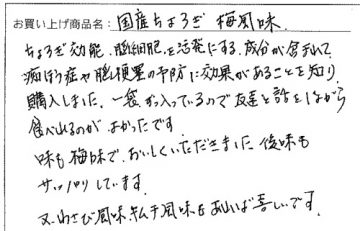 お買い上げ商品名：国産ちょろぎ 梅風味
ちょろぎ効能、脳細胞を活発にする成分が含まれて
痴ほう症や脳梗塞の予防に効果があることを知り
購入しました。一袋ずつ入っているので友達と話をしながら
食べれるのがよかったです。
味も梅味で、おいしくいただきました。後味も
サッパリしています。
又、わさび風味、キムチ風味もあれば喜しいです。